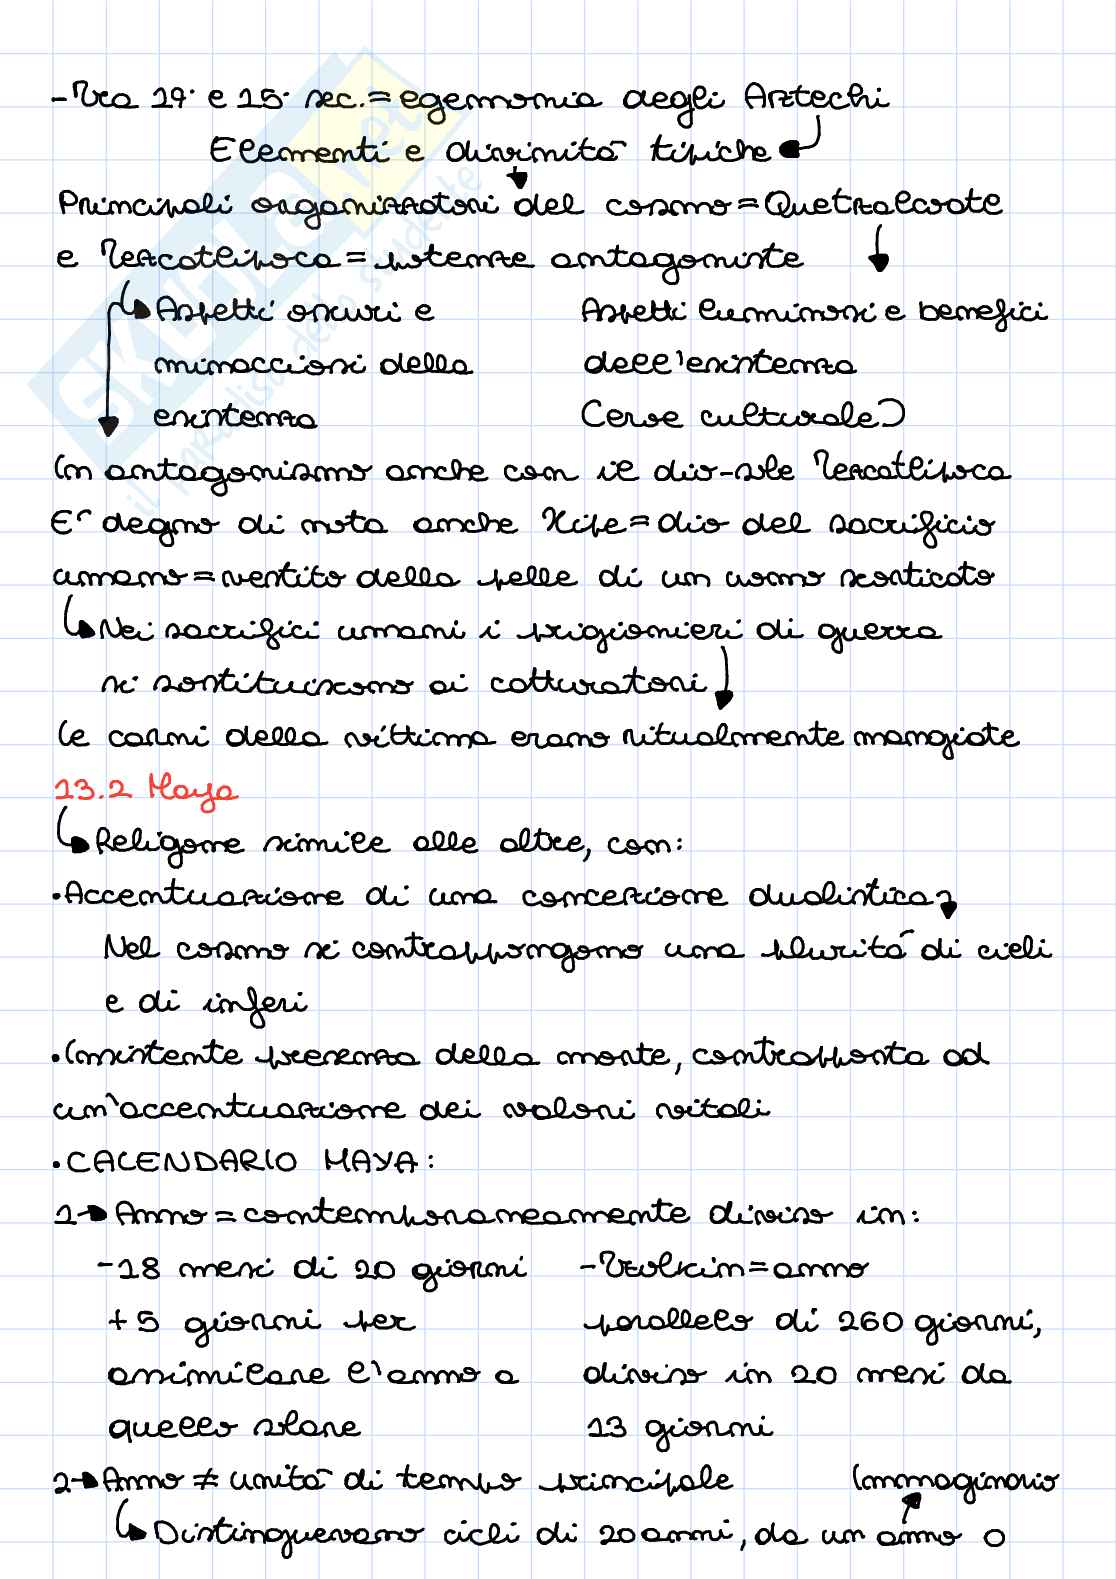 -Tra 14° e 15° sec.= egemonia degli Aztechi
Elementi e divinità tipiche
Principali organizzatori del cosmo=Quetzalcoatl
e Tezcatlipoca= potenze antagoniste
Aspetti oscuri e
minacciosi della
esistenza
Aspetti luminosi e benefici
dell'esistenza
Eroe culturale
In antagonismo anche con il dio-sole Tezcatlipoca
E' degno di nota anche Xipe=dio del sacrificio
umano=vestito della pelle di un uomo scorticato
Nei sacrifici umani i prigionieri di guerra
si sostituiscono ai catturatori
le carni della vittima erano ritualmente mangiate
13.2 Maya
Religone simile alle altre, con:
•Accentuazione di una concezione dualistica
Nel cosmo si contrappongono una plurità di cieli
e di inferi
•Insistente presenza della morte, contrapposta ad
un'accentuazione dei valori vitali
•CALENDARIO MAYA:
1→ Anno=contemporaneamente diviso in:
-18 mesi di 20 giorni
+5 giorni per
assimilare l'anno a
quello solare
-Tzolkin=anno
parallelo di 260 giorni,
diviso in 20 mesi da
13 giorni
2→Anno ≠ unità di tempo principale
Immaginario
Distinguevano cicli di 20 anni, da un anno 0
SKUOLA.net
il paradiso dello studente